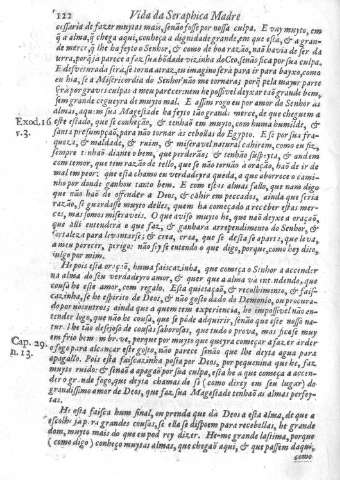 122 Vida da Seraphica Madre
cessaria de fazer muytas mais, senão fosse por nossa culpa. E vay muyto, em
q̃ a alma, q̃ chega aqui, conheça a dignidade grande, em que està, & a gran-
de mercè, q̃ lhe ha feyto o Senhor, & como de boa razão, naõ havia de ser da
terra, porq̃ ja parece a faz sua bõdade vizinha do Ceo, senão fica por sua culpa.
E desventurada serà, se torna atraz, eu imagino serà para ir para bayxo, como
eu hia, se a Misericordia do Senhor não me tornara: porq̃ pela mayor parte
serà por graves culpas a meu parecer: nem he possivel deyxar taõ grande bem,
sem grande cegueyra de muyto mal. E assim rogo eu por amor do Senhor às
almas, a quem sua Magestade ha feyto taõ grande merce, de que cheguem a
Exod. 16. este estado, que se conheçaõ, & tenhaõ em muyto, com huma humilde, &
v. 3. santa presumpçaõ, para não tornar às cebollas do Egypto. E se por sua fra-
queza, & maldade, & ruim, & miseravel natural cahirem, como eu fiz,
sempre tenhaõ diante o bem, que perderão; & tenhão suspeyta, & andem
com temor, que tem razão de tello, que se não tornão à oração, haõ de ir de
mal em peor: que esta chamo eu verdadeyra queda, a que aborrece o cami-
nho por donde ganhou tanto bem. E com estas almas fallo, que naõ digo
que não haõ de offender a Deos, & cahir em peccados, ainda que seria
razão, se guardasse muyto delles, quem ha começado a receber estas mer-
ces, mas somos miseraveis. O que aviso muyto he, que naõ deyxe a oraçaõ,
que alli entenderà o que faz, & ganharà arrependimento do Senhor, &
fortaleza para levantarse; & crea, crea, que se desta se aparta, que leva,
a meu parecer, perigo: não sey se entendo o que digo, porque, como hey dito,
julgo por mim.
He pois esta oração, huma faiscazinha, que começa o Senhor a accender
na alma do seu verdadeyro amor, & quer que a alma và entendendo, que
cousa he este amor, com regalo. Esta quietaçaõ, & recolhimento, & fais-
cazinha, se he espirito de Deos, & não gosto dado do Demonio, ou procura-
do por nòs outros; ainda que a quem tem experiencia, he impossivel não en-
tender logo, que não he cousa, que se pòde adquirir, senão que este nosso na-
tural he tão desejoso de cousas saborosas, que tudo o prova, mas fica-se muy
Cap. 29. em frio bem em breve, porque por muyto que queyra começar a fazer arder
n. 13. o fogo para alcançar este gosto, não parece senão que lhe deyta agua para
apagallo. Pois esta faiscazinha posta por Deos, por pequenina que he, faz
muyto ruido: & senaõ a apagaõ por sua culpa, esta he a que começa a accen-
der o grande fogo, que deyta chamas de si (como direy em seu lugar) do
grandissimo amor de Deos, que faz sua Magestade tenhaõ as almas perfey-
tas.
He esta faisca hum sinal, ou prenda que dà Deos a esta alma, de que a
escolhe ja para grandes cousas, se ella se dispoem para recebellas, he grande
dom, muyto mais do que eu poderey dizer. He-me grande lastima, porque
(como digo) conheço muytas almas, que chegaõ aqui, & que passem daqui,
como